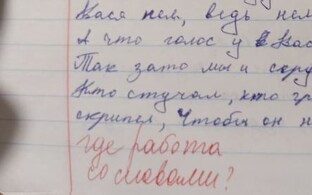 Вася нем, ведь нем
А что голос у Вас
Так зато мы и
Кто стучал, кто
скрипел, Чтобы он н
где работа
со словами?